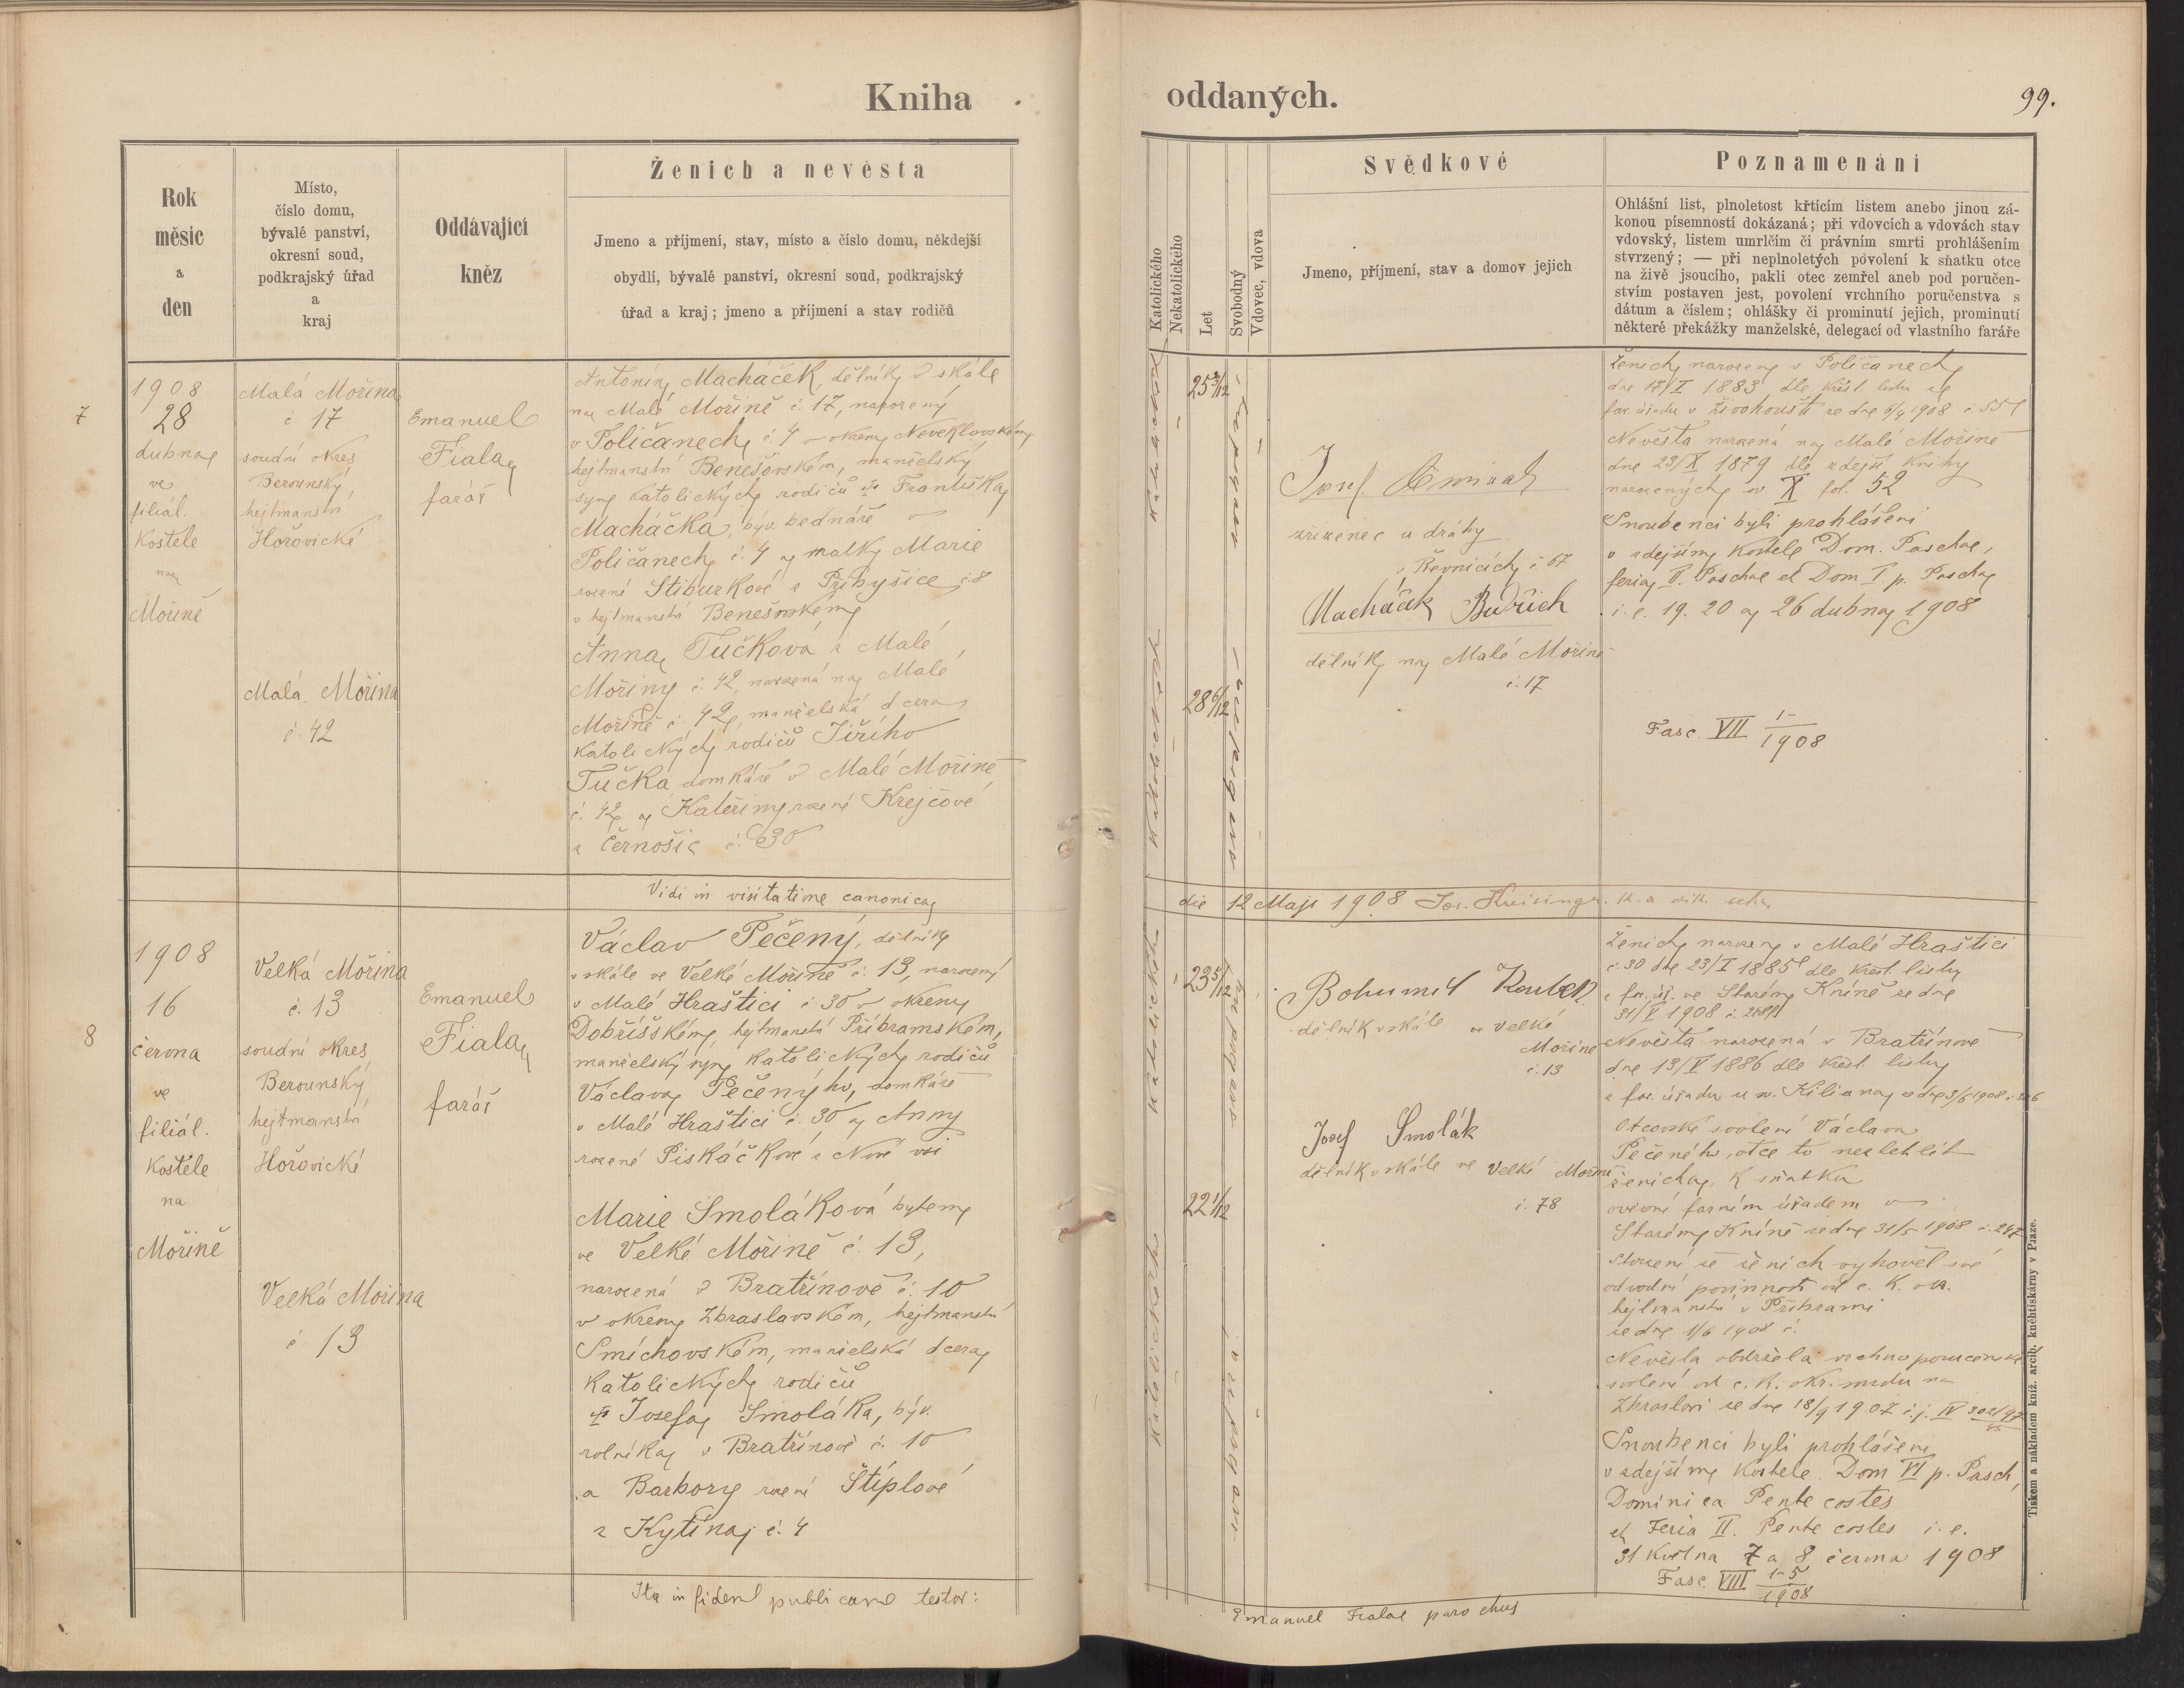 Kniha oddaných.
99.
Rok
měsíc
a
den
Místo,
číslo domu,
bývalé panství,
okresní soud,
podkrajský úřad
a
kraj
Oddávající
kněz
Ženich a nevěsta
Jmeno a příjmení, stav, místo a číslo domu, někdejší
obydlí, bývalé panství, okresní soud, podkrajský
úřad a kraj; jmeno a příjmení a stav rodičů
Katolického
Nekatolického
Let
Svobodný
Vdovec, vdova
Svědkové
Jmeno, příjmení, stav a domov jejich
Poznamenání
Ohlášní list, plnoletost křtícím listem anebo jinou zá-
konou písemností dokázaná; při vdovcích a vdovách stav
vdovský, listem umrlčím či právním smrti prohlášením
stvrzený; — při neplnoletých povolení k sňatku otce
na živě jsoucího, pakli otec zemřel aneb pod poručen-
stvím postaven jest, povolení vrchního poručenstva s
dátum a číslem; ohlášky či prominutí jejich, prominutí
některé překážky manželské, delegací od vlastního faráře
7
1908
28
dubna
ve
filiál.
kostele
na
Mořině
Malá Mořina
č 17
soudní okres
Berounský
hejtmanství
Hořovické
Malá Mořina
č. 42
Emanuel
Fiala
farář
Antonín Macháček, dělník v skále
na Malé Mořině č. 17, narozený
v Poličanech č. 4 v okresu Neveklovském
hejtmanství Benešovském, manželský
syn katolických rodičů † Františka
Macháčka, býv. bednáře v
Poličanech č. 4 a matky Marie
rozené Stiburkové z Přibyšice č 8
v hejtmanství Benešovském
Anna Tučková z Malé
Mořiny č. 42, narozená na Malé
Mořině č. 42, manželská dcera
katolických rodičů Jiřího
Tučka domkáře v Malé Mořině
č. 42 a Kateřiny rozené Krejčové
z Černošic č. 30
katolické
25 3/12
svobodný
katolické
28 6/12
svobodná
Josef
zřízenec u dráhy
v Řevnicích č 67
Macháček Bedřich
dělník na Malé Mořině
č. 17
Ženich narozen v Poličanech
dne 17/I 1883 dle křest. listu ze
far. úřadu v Živohoušti ze dne 1908 č 55
Nevěsta narozená na Malé Mořině
dne 23/X 1879 dle zdejší knihy
narozených sv X fol. 52
Snoubenci byli prohlášeni
v zdejším kostele Dom. Paschae,
feria II. Paschae et Dom I p. Pascha
i. e. 19. 20 a 26 dubna 1908
Fasc. VII 1-/1908
Vidi in visitatione canonica
die 12 Maji 1908 Jos.
8
1908
16
června
ve
filiál.
kostele
na
Mořině
Velká Mořina
č. 13
soudní okres
Berounský
hejtmanství
Hořovické
Velká Mořina
č 13
Emanuel
Fiala
farář
Václav Pečený, dělník
v skále ve Velké Mořině č. 13, narozený
v Malé Hraštici č 30 v okresu
Dobříšském, hejtmanství Příbramském,
manželský syn katolických rodičů
Václava Pečenýho, domkáře
v Malé Hraštici č. 30 a Anny
rozené Piskáčkové z Nové vsi
Marie Smoláková bytem
ve Velké Mořině č. 13,
narozená v Bratřínově č. 10
v okresu Zbraslavském, hejtmanství
Smíchovském, manželská dcera
katolických rodičů
† Josefa Smoláka, býv.
rolníka v Bratřínově č. 10
a Barbory rozené Štíplové
z Kytína č. 4
katolického
23 5/12
svobodný
katolického
22 1/12
svobodná
Bohumil Koubek
dělník v skále ve Velké
Mořině
č. 13
Josef Smolák
dělník v skále ve Velké Mořině
č. 78
Ženich narozen v Malé Hraštici
č. 30 dne 23/I 1885 dle křest. listu
z far. úř. ve Starém Kníně ze dne
31/V 1908 č.
Nevěsta narozená v Bratřínově
dne 13/V 1886 dle křest. listu
z far. úřadu u sv. Kiliana ze dne 3/6 1908
Otcovské svolení Václava
Pečeného, otce to nezletilého
ženicha, k sňatku
ověřené farním úřadem v
Starém Kníně ze dne 31/5 1908 č. 247
Stvrzení že ženich vyhověl své
odvodní povinnosti od c. k. okr.
hejtmanství v Příbrami
ze dne 1/6 1908 č.
Nevěsta obdržela vrchnoporučenské
svolení od c. k. okr. soudu na
Zbraslavi ze dne 18/9 1907 č. j. IV
Snoubenci byli prohlášeni
v zdejším kostele Dom VI p. Pasch,
Dominica Pentecostes
et Feria II. Pentecostes i. e.
31 května 7 a 8 června 1908
Fasc. VIII 1-5/1908
Ita in fidem publicam testor:
Emanuel Fiala parochus
Tiskem a nákladem kníž. arcib. kněhtiskárny v Praze.